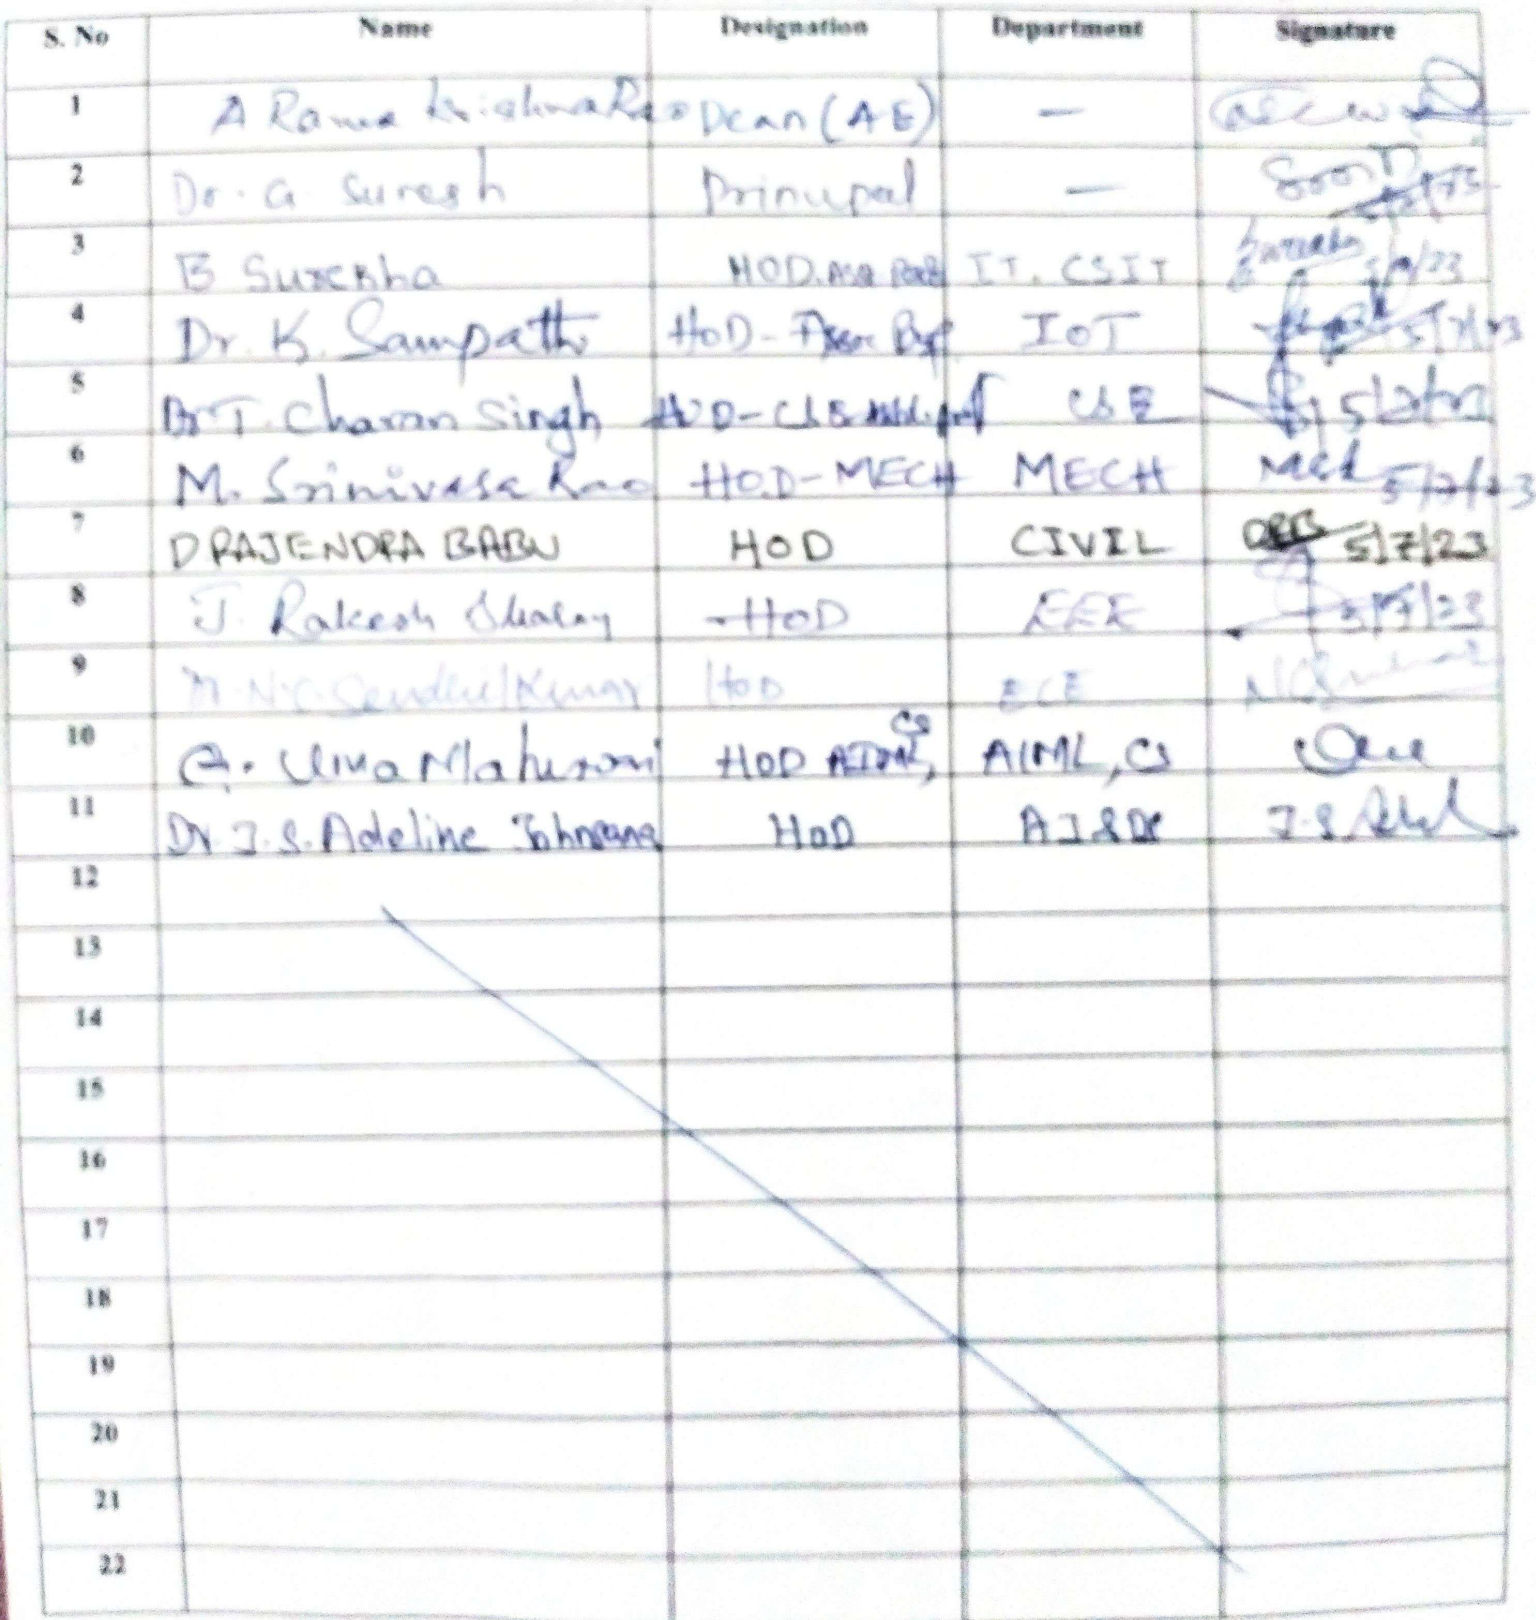 S. No Name Designation Department Signature
1 A Rama Krishna Rao Dean (AE) —
2 Dr. G. Suresh Principal —
3 B Surekha HOD. IT, CSIT
4 Dr. K. Sampath HOD - IOT 5/7/23
5 Dr T. Charan Singh HOD - CSE CSE
6 M. Srinivasa Rao HOD-MECH MECH 5/7/23
7 D RAJENDRA BABU HOD CIVIL DRB 5/7/23
8 J. Rakesh HOD EEE 5/7/23
9 HOD ECE
10 G. Uma Maheswari HOD AIML, CS AIML, CS
11 Dr. J. S. Adeline Johnsana HOD AI&DS J.S.
12
13
14
15
16
17
18
19
20
21
22